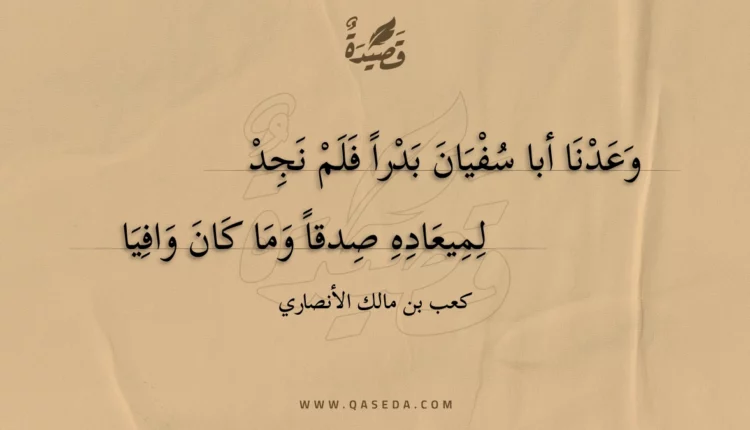 قَصِيْدَةٌ
وَعَدْنَا أبا سُفْيَانَ بَدْراً فَلَمْ نَجِدْ
لِمِيعَادِهِ صِدقاً وَمَا كَانَ وَافِيَا
كعب بن مالك الأنصاري
WWW.QASEDA.COM